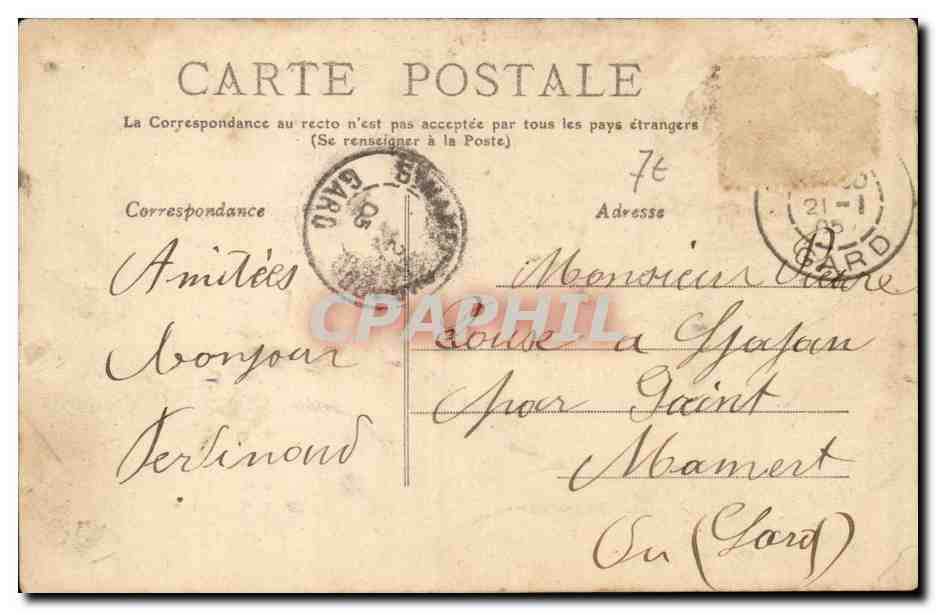 CARTE POSTALE
La Correspondance au recto n'est pas acceptée par tous les pays étrangers
(Se renseigner à la Poste)
7€
Correspondance
GARD
05
Adresse
21-1
05
GARD
Amitées
Bonjour
Ferdinand
Monsieur Pierre
à Gajan
par Saint
Mamert
Du (Gard)
CPAPHIL